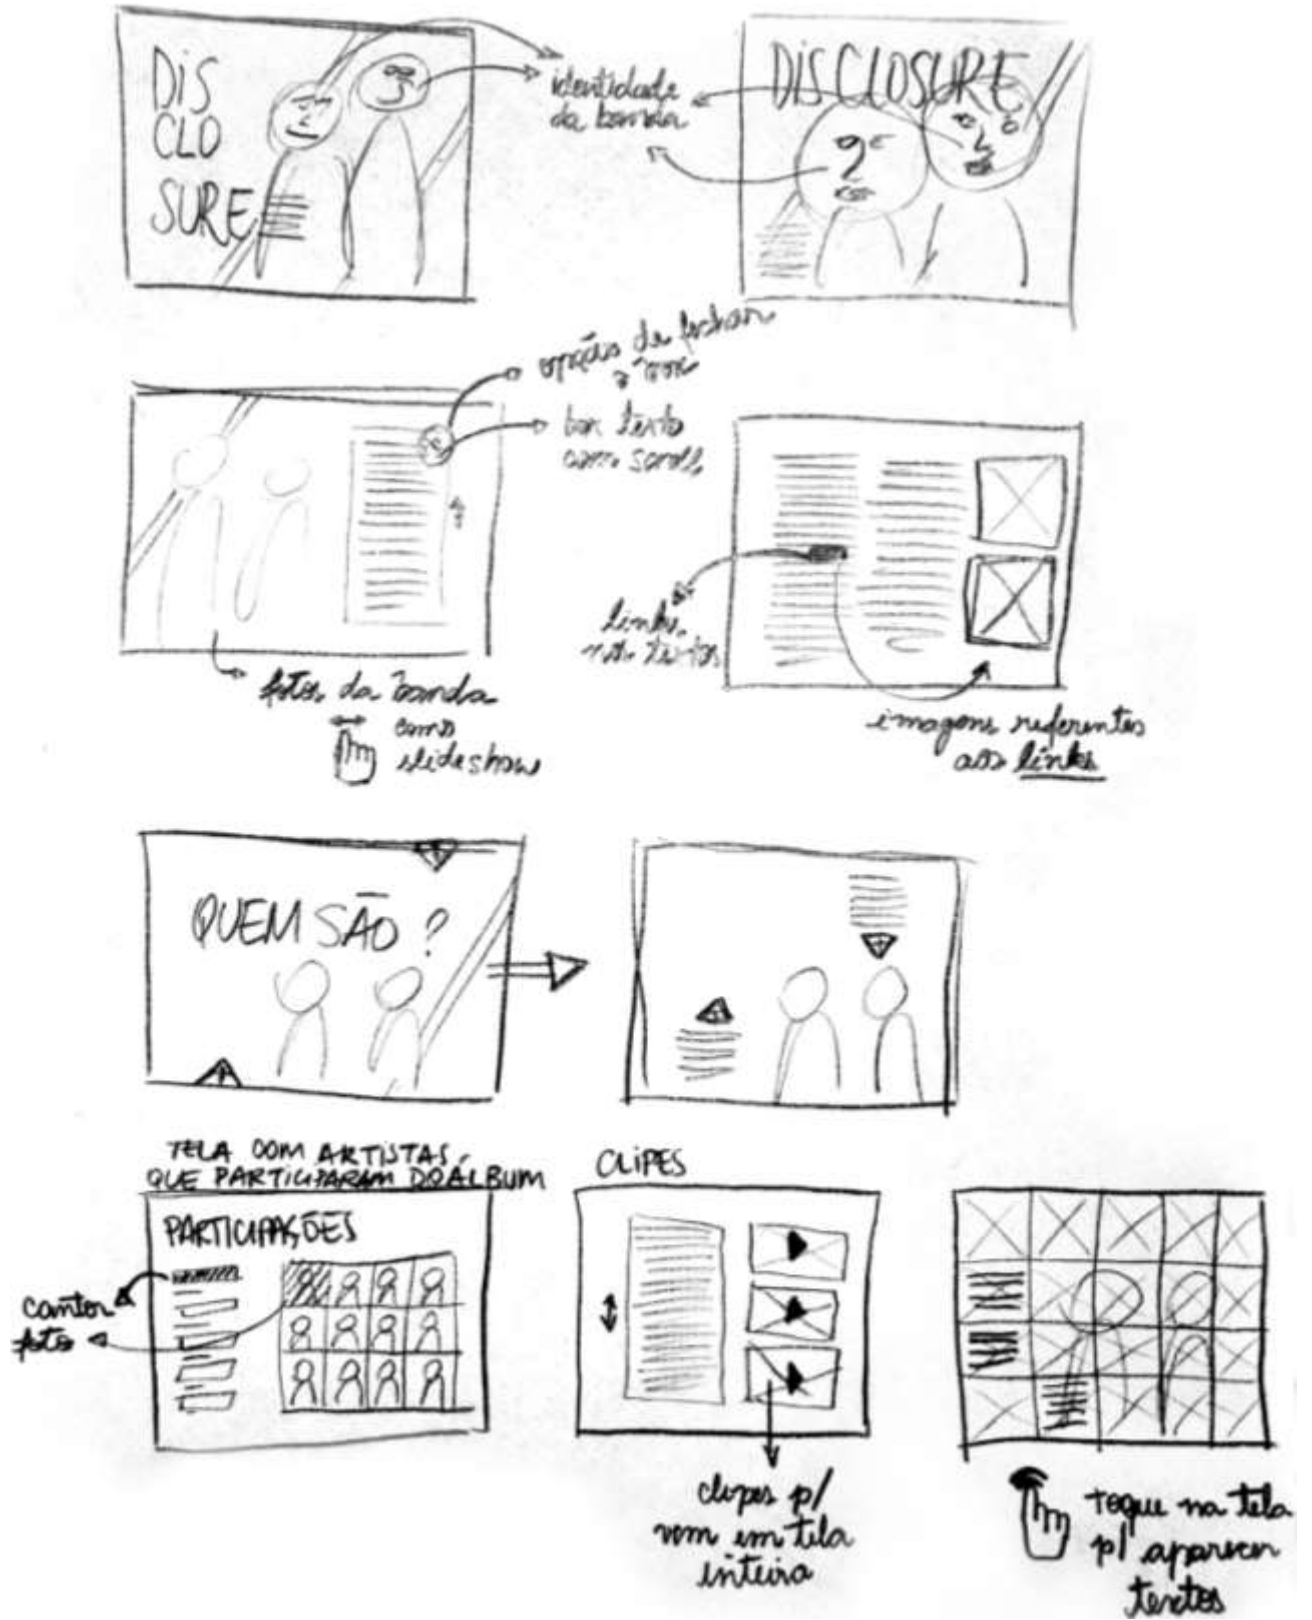 DIS
CLO
SURE
identidade
da banda
DISCLOSURE
opção de fechar
o box
box texto
com scroll
links
nos textos
fotos da banda
como
slideshow
imagens referentes
aos links
QUEM SÃO?
TELA COM ARTISTAS
QUE PARTICIPARAM DO ÁLBUM
PARTICIPAÇÕES
cantor
foto
CLIPES
clipes p/
verem em tela
inteira
toque na tela
p/ aparecer
textos